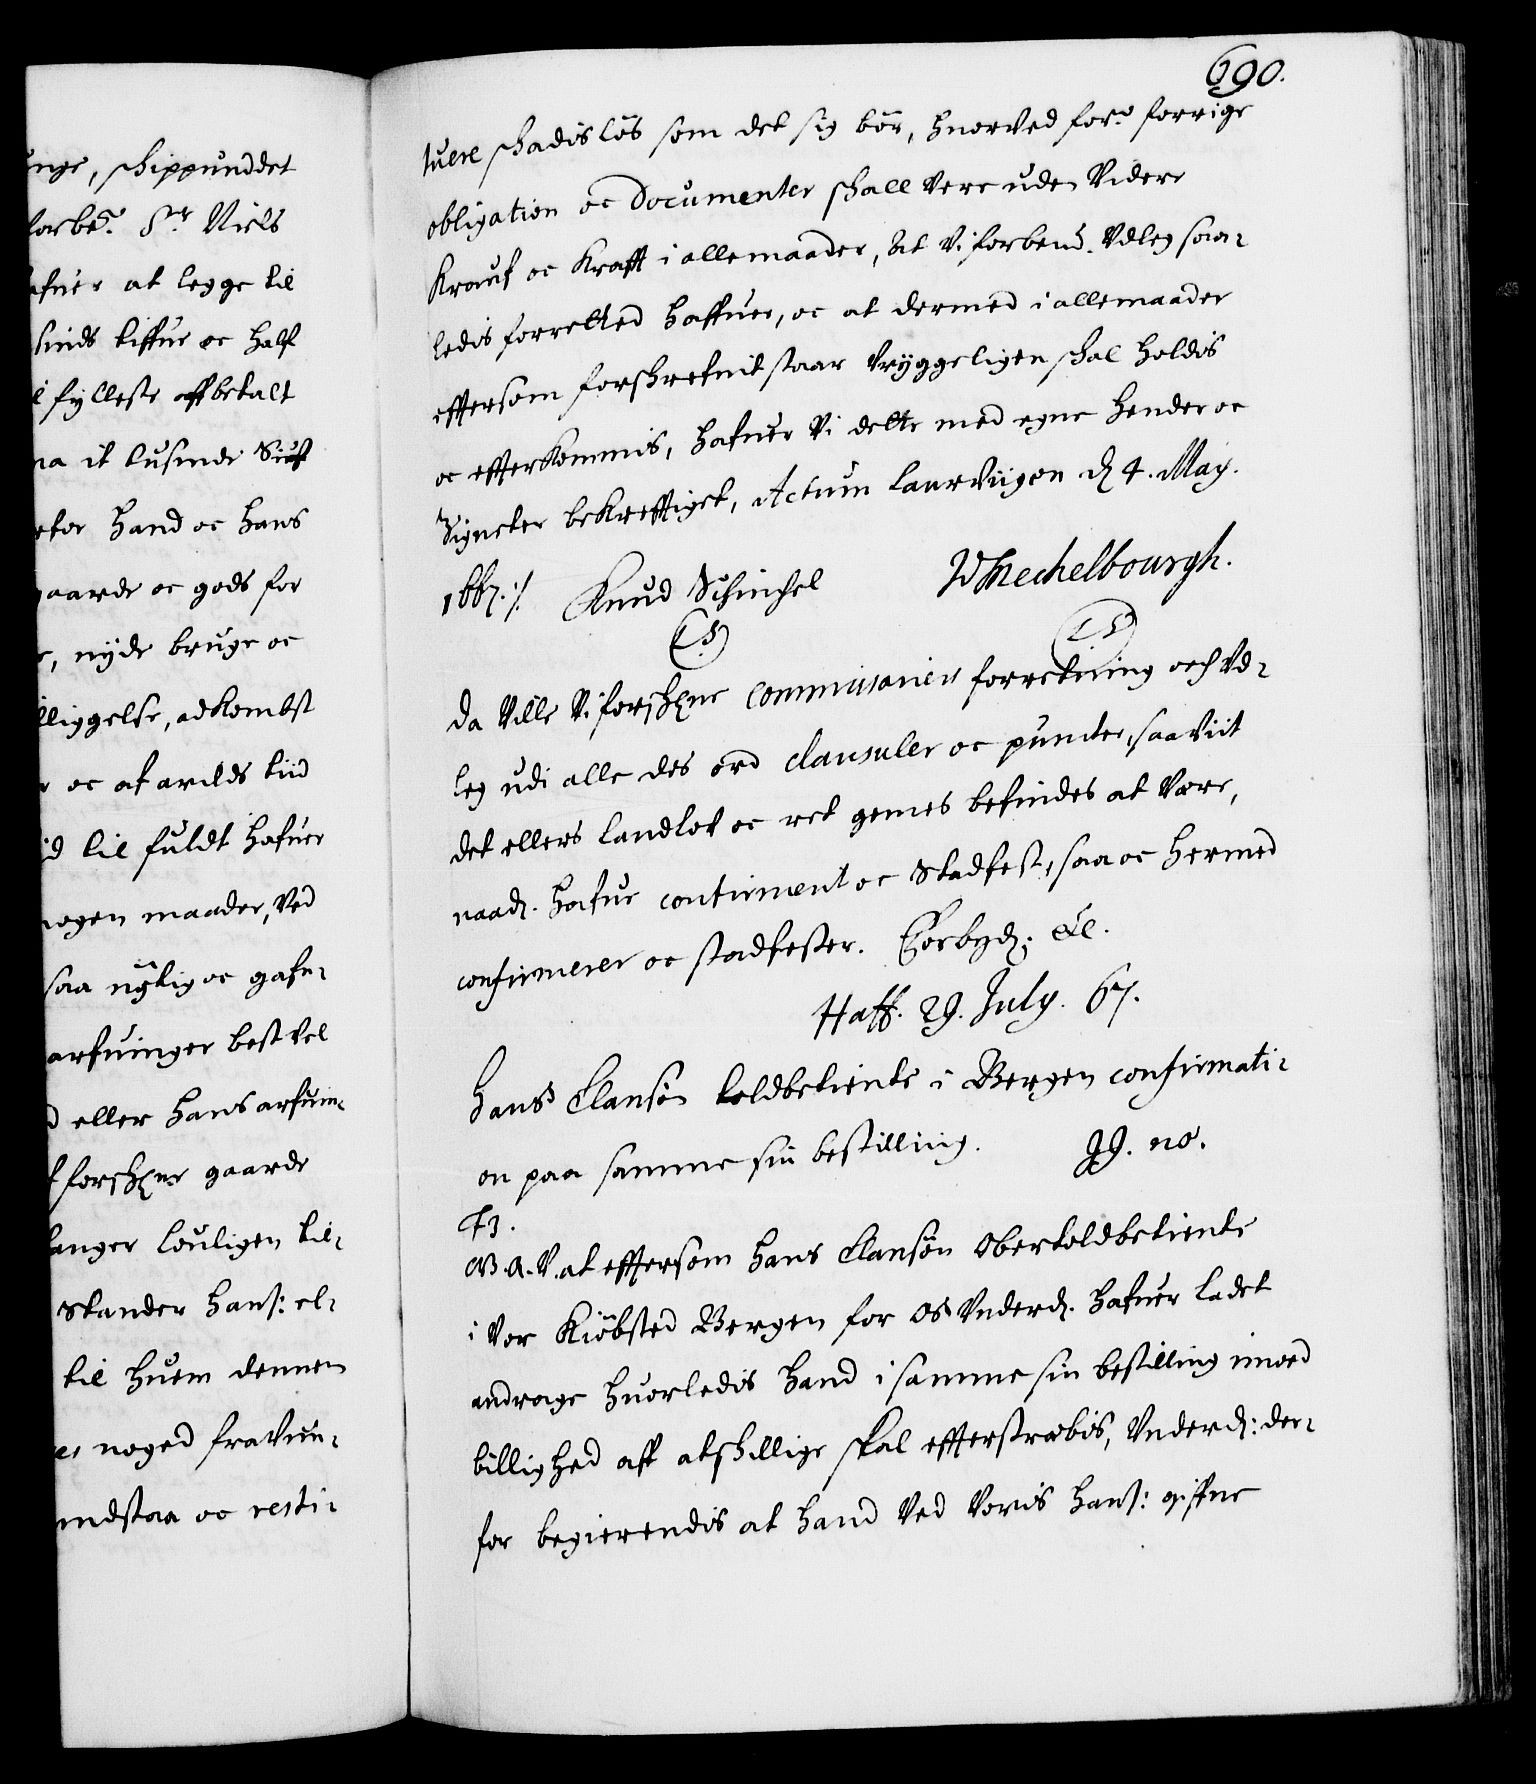 unge, schippunddet
forbe.te Sr Niels
afuer at legge til
sinds tiffue oc half
l fylleste affbetalt
na it tusinde Siuf
etor hand oc hans
gaarde oc gods for
e, nyde bruge oc
lliggelse, adkombst
r oc af arilds tiid
id til fuldt hafuer
nogen maader, ved
saa nytig oc gafn-
arfuinger best vel
d eller hans arfuin-
f forschne gaarde
langer louligen til-
stander hans: el-
til huem dennem
es noged fravun-
indstaa oc resti-
690.
tuere schadisløs som det sig bør, huorved for.e forrige
obligation oc documenter schall vere uden videre
Krauf oc Krafft i alle maader, At vi forbend. Vdleg saa-
ledis forretted haffuer, oc at dermed i alle maader
efftersom forschrefuit staar vryggeligen schal holdis
oc effterkommis, hafuer vi dette med egne hender oc
Signeter bekrefftiget, Actum Laurviigen d. 4. May.
1667. ⁒ Knud Schinchel WMechelbourgh.
(L.S.) (L.S.)
Da ville vi forschne commissariers forretning och vd-
leg udi alle des ord clausuler oc puncter, saa viit
det ellers landlof oc ret gemes befindes at være,
naad. hafue confirmert oc stadfest, saa oc hermed
confirmerer oc stadfester. Forbyd. &c.
Haff. 29. July. 67.
Hans Clausøn toldbetiente i Bergen confirmati-
on paa samme sin bestilling. J9. no.
F3.
G.A.V. at effterson Hans Clausøn Obertoldbetiente
i vor Kiøbsted Bergen for os vnderd. hafuer ladet
andrage huorledis hand i samme sin bestilling imod
billighed aff atschillige skal effterstræbis, vnderd: der-
for begierendis at hand ved voris hans: gifne